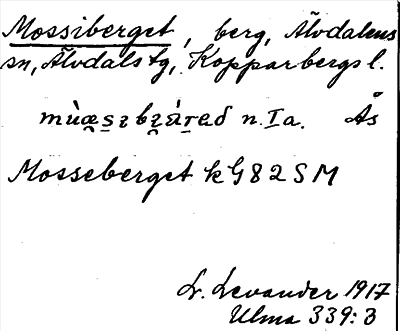 Mossiberget, berg, Älvdalens
sn, Älvdals tg, Kopparbergs l.
n. Ia. Ås
Mosseberget k G 82 S M
L. Levander 1917
Ulma 339:3